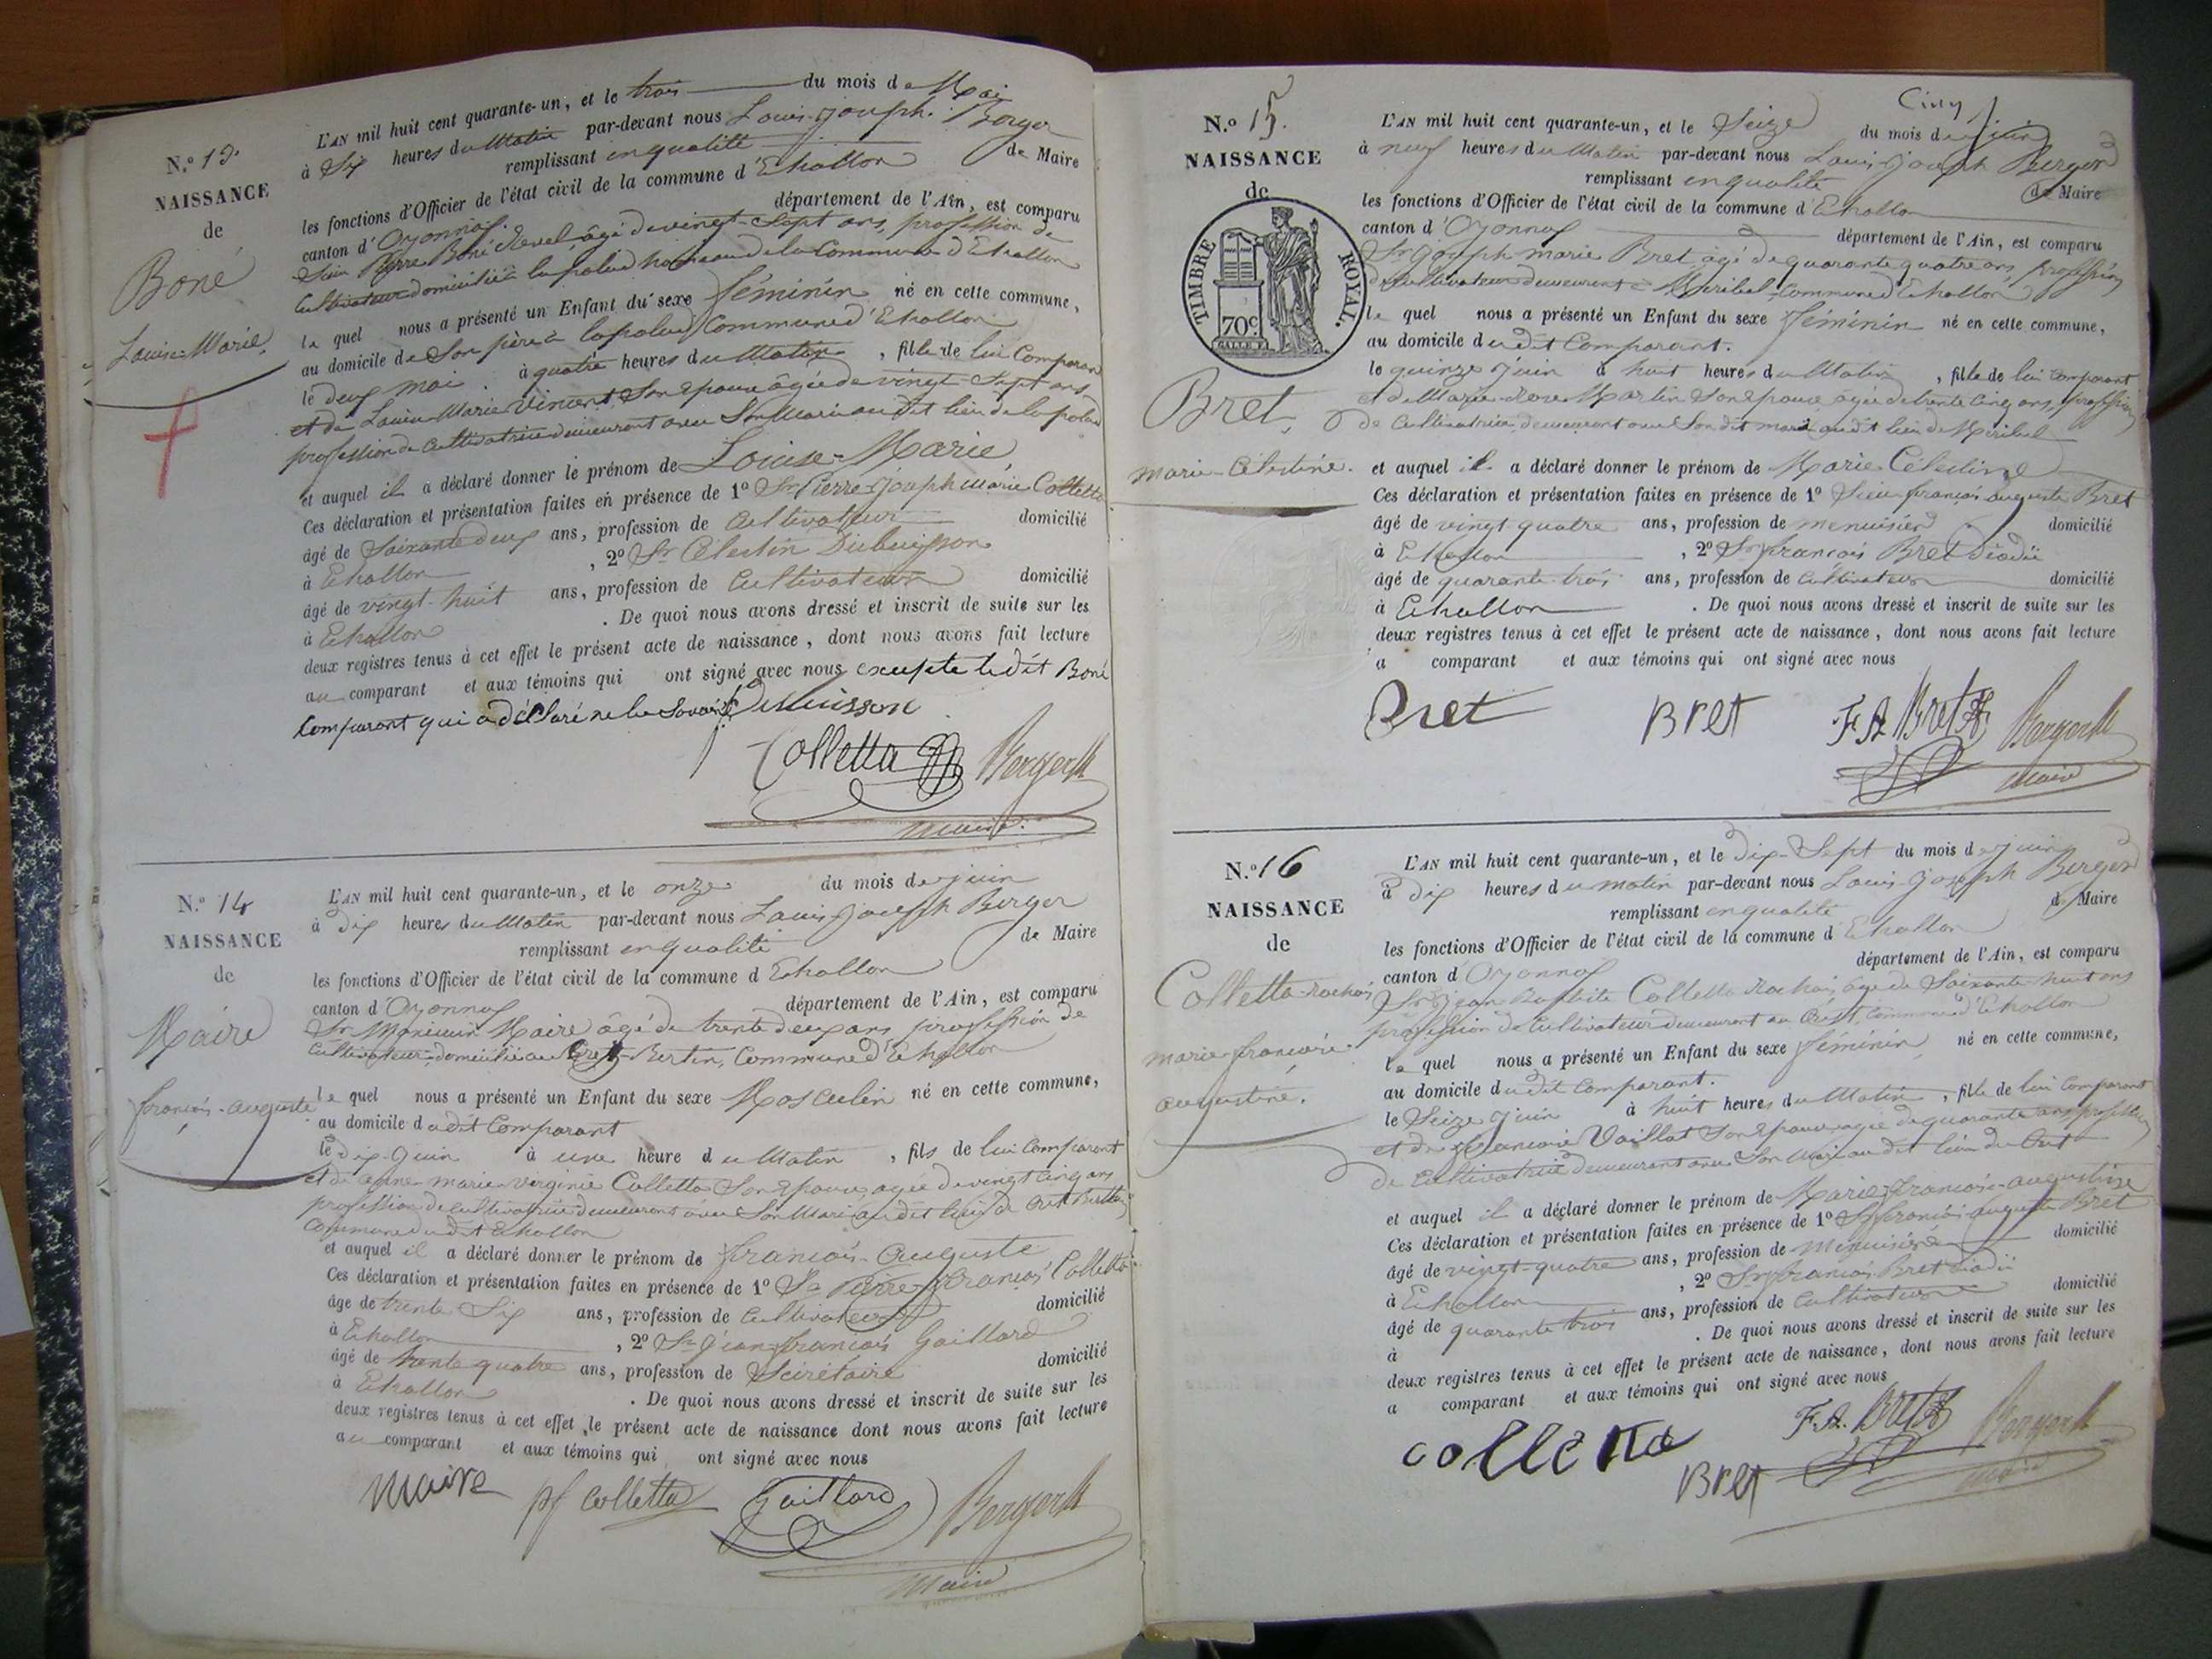 N.o 13.
NAISSANCE
de
Boné
Louise-Marie.
L'AN mil huit cent quarante-un, et le trois du mois de Mai
à Six heures du Matin par-devant nous Louis-joseph Berger
remplissant en qualité de Maire
les fonctions d'Officier de l'état civil de la commune d'Echallon
canton d'Oyonnax département de l'Ain, est comparu
Pierre Boné Revel, âgé de vingt-Sept ans, profession de
Cultivateur domicilié à lapalud hameau de la Commune d'Echallon
le quel nous a présenté un Enfant du sexe féminin né en cette commune,
au domicile de Son père à lapalud Commune d'Echallon
le deux mai à quatre heures du Matin, fille de lui Comparant
et de Louise Marie Vincent Son Epouse âgée de vingt-Sept ans
profession de Cultivatrice demeurant avec Son Mari au dit lieu de lapalud
et auquel il a déclaré donner le prénom de Louise-Marie
Ces déclaration et présentation faites en présence de 1o Sr Pierre joseph marie Colletta
âgé de Soixante deux ans, profession de Cultivateur domicilié
à Echallon, 2o Sr Célestin Dubuisson
âgé de vingt-huit ans, profession de Cultivateur domicilié
à Echallon. De quoi nous avons dressé et inscrit de suite sur les
deux registres tenus à cet effet le présent acte de naissance, dont nous avons fait lecture
au comparant et aux témoins qui ont signé avec nous excepte ledit Boné
Comparant qui a déclaré ne le Savoir. Dubuisson
Colletta Berger
maire
N.o 14
NAISSANCE
de
Maire
françois-auguste
L'AN mil huit cent quarante-un, et le onze du mois de juin
à dix heures du Matin par-devant nous Louis-joseph Berger
remplissant en qualité de Maire
les fonctions d'Officier de l'état civil de la commune d Echallon
canton d'Oyonnax département de l'Ain, est comparu
Sr Maire âgé de trente deux ans profession de
Cultivateur domicilié au Crêt-Bertin, Commune d'Echallon
le quel nous a présenté un Enfant du sexe Masculin né en cette commune,
au domicile dudit Comparant
le dix juin à une heure du Matin, fils de lui Comparant
et de marie virginie Colletta Son Epouse, agée de vingt cinq ans
profession de cultivatrice demeurant avec Son Mari au dit lieu de Crêt Bertin
Commune dudit Echallon
et auquel il a déclaré donner le prénom de françois-Auguste
Ces déclaration et présentation faites en présence de 1o Sr Pierre-françois Colletta
âge de trente Six ans, profession de Cultivateur domicilié
à Echallon, 2o Sr jean françois Gaillard
âgé de trente quatre ans, profession de Sécrétaire domicilié
à Echallon. De quoi nous avons dressé et inscrit de suite sur les
deux registres tenus à cet effet le présent acte de naissance dont nous avons fait lecture
au comparant et aux témoins qui ont signé avec nous
maire pf colletta Gaillard Berger
Maire
Cinq
N.o 15.
NAISSANCE
de
TIMBRE ROYAL.
70c
Bret,
marie-Célestine.
L'AN mil huit cent quarante-un, et le Seize du mois de juin
à neuf heures du Matin par-devant nous Louis-joseph Berger
remplissant en qualité de Maire
les fonctions d'Officier de l'état civil de la commune d'Echallon
canton d'Oyonnax département de l'Ain, est comparu
Sr joseph marie Bret, âgé de quarante quatre ans, profession
de Cultivateur demeurant à Miribel Commune d'Echallon
le quel nous a présenté un Enfant du sexe féminin né en cette commune,
au domicile dudit Comparant.
le quinze juin à huit heures du Matin, fille de lui Comparant
et de Marie Martin Son Epouse agée de trente Cinq ans, profession
de Cultivatrice demeurant avec Son dit mari audit lieu de Miribel
et auquel il a déclaré donner le prénom de Marie Célestine
Ces déclaration et présentation faites en présence de 1o Sieur françois auguste Bret
âgé de vingt quatre ans, profession de menuisier domicilié
à Echallon, 2o Sr françois Bret
âgé de quarante-trois ans, profession de Cultivateur domicilié
à Echallon. De quoi nous avons dressé et inscrit de suite sur les
deux registres tenus à cet effet le présent acte de naissance, dont nous avons fait lecture
a comparant et aux témoins qui ont signé avec nous
Bret Bret F A Bret Berger
Maire
N.o 16
NAISSANCE
de
Colletta-Rochais
marie-françoise-
augustine.
L'AN mil huit cent quarante-un, et le dix-Sept du mois de juin
à dix heures du matin par-devant nous Louis-joseph Berger
remplissant en qualité de Maire
les fonctions d'Officier de l'état civil de la commune d Echallon
canton d Oyonnax département de l'Ain, est comparu
Sr jean Baptiste Colletta Rochais, âgé de Soixante-huit ans
profession de Cultivateur demeurant au Crêt, Commune d'Echallon
le quel nous a présenté un Enfant du sexe féminin né en cette commune,
au domicile dudit Comparant.
le Seize juin à huit heures du Matin, fille de lui Comparant
et de françoise Vaillat Son Epouse agée de quarante ans profession
de Cultivatrice demeurant avec Son Mari au dit lieu du Crêt
et auquel il a déclaré donner le prénom de Marie-françoise-augustine
Ces déclaration et présentation faites en présence de 1o Sr françois auguste Bret
âgé de vingt-quatre ans, profession de Menuisier domicilié
à Echallon, 2o Sr françois Bret
âgé de quarante trois ans, profession de Cultivateur domicilié
à . De quoi nous avons dressé et inscrit de suite sur les
deux registres tenus à cet effet le présent acte de naissance, dont nous avons fait lecture
a comparant et aux témoins qui ont signé avec nous
colleta Bret F.A. Bret Berger
Maire